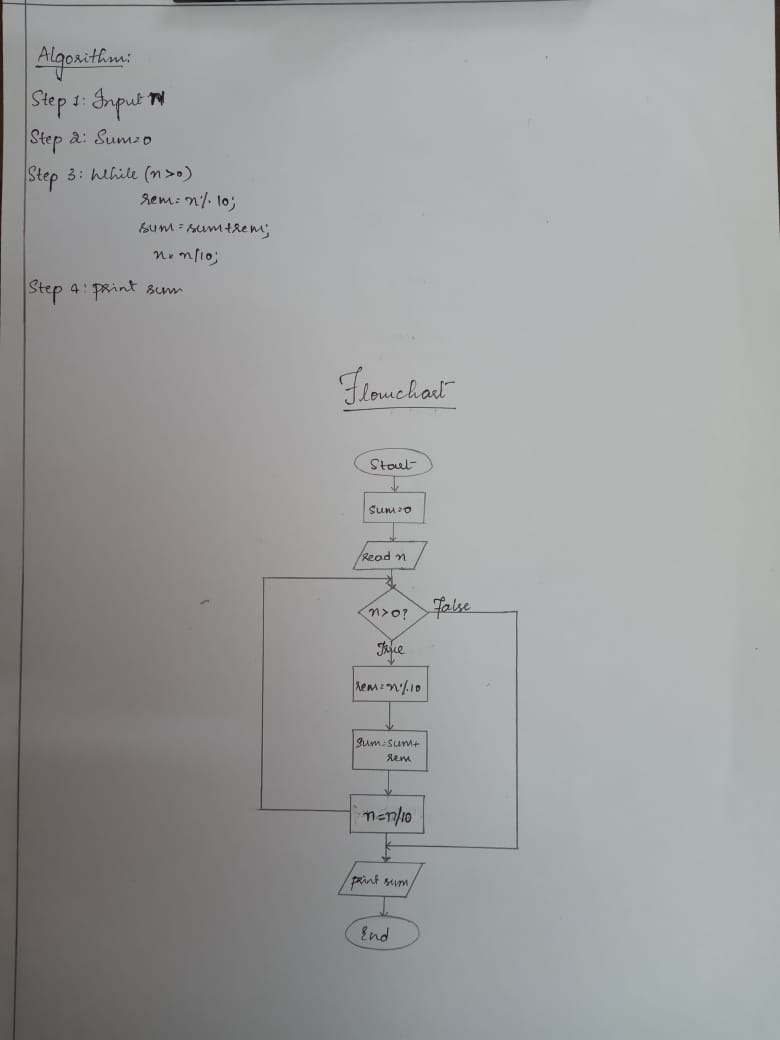 Algorithm:
Step 1: Input n
Step 2: Sum=0
Step 3: While (n>0)
rem=n%10;
sum=sum+rem;
n=n/10;
Step 4: print sum
Flowchart
Start
sum=0
read n
n>0?
False
True
rem=n%10
sum=sum+
rem
n=n/10
print sum
End